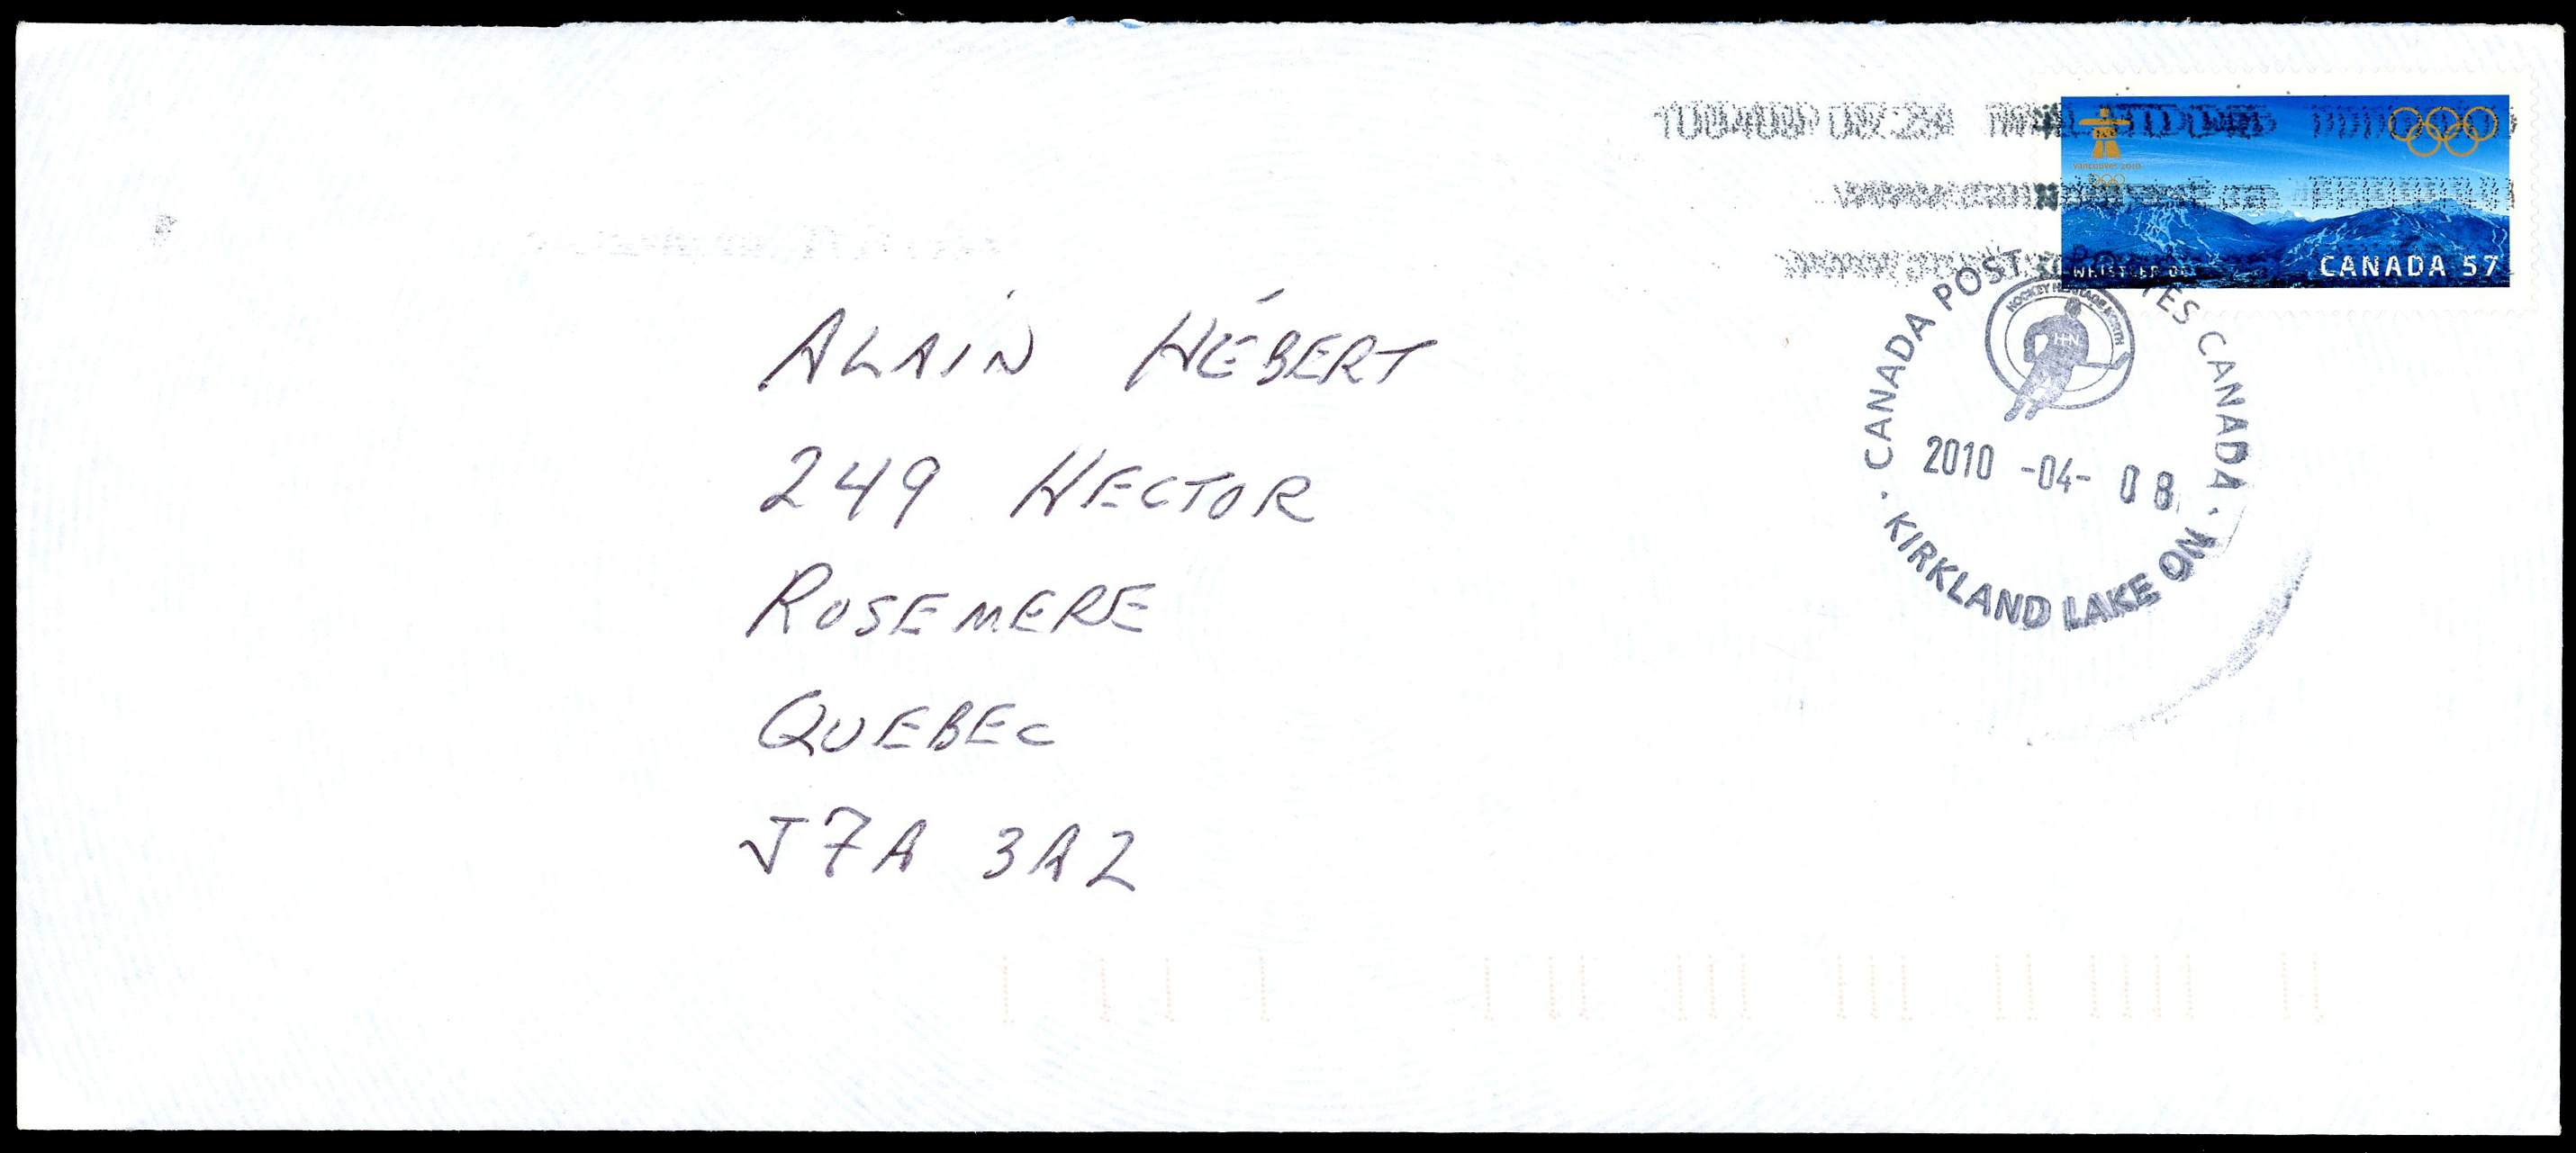 VANCOUVER 2010
WHISTLER
CANADA 57
CANADA POSTES CANADA
HOCKEY HERITAGE NORTH
HHN
2010 -04- 08
KIRKLAND LAKE ON
ALAIN HÉBERT
249 HECTOR
ROSEMERE
QUEBEC
J7A 3A2